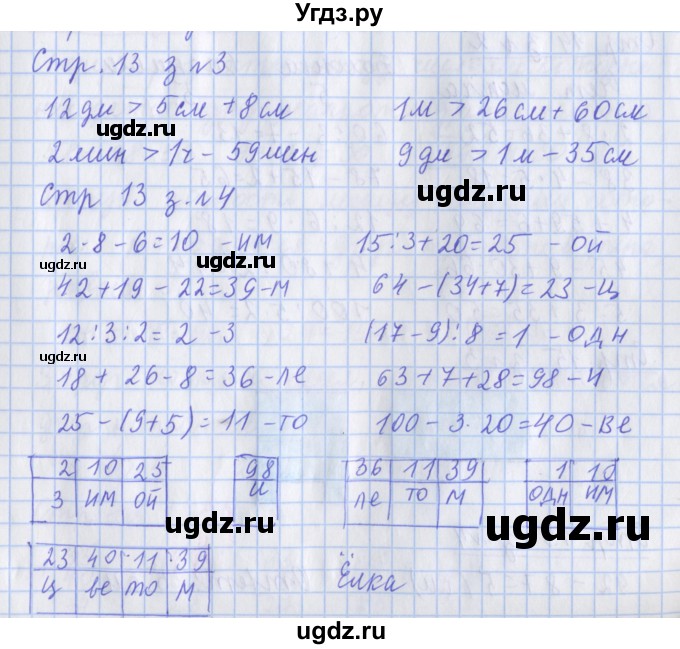 Угдз.ру
Стр. 13 з №3
12дм > 5см + 8см 1м > 26см + 60см
ugdz.ru ugdz.ru
2мин > 1ч - 59мин 9дм > 1м - 35см
Стр 13 з. №4
2·8-6=10 - им 15:3+20=25 - ой
ugdz.ru ugdz.ru
42+19-22=39-м 64-(34+7)=23-ц
12:3:2=2-з (17-9):8=1 - одн
ugdz.ru ugdz.ru
18+26-8=36-ле 63+7+28=98-и
25-(9+5)=11-то 100-3·20=40-ве
2 10 25 98 36 11 39 1 10
з им ой и ле то м одн им
ugdz.ru ugdz.ru
23 40 11 39
ц ве то м
Ёлка
ugdz.ru
ugdz.ru